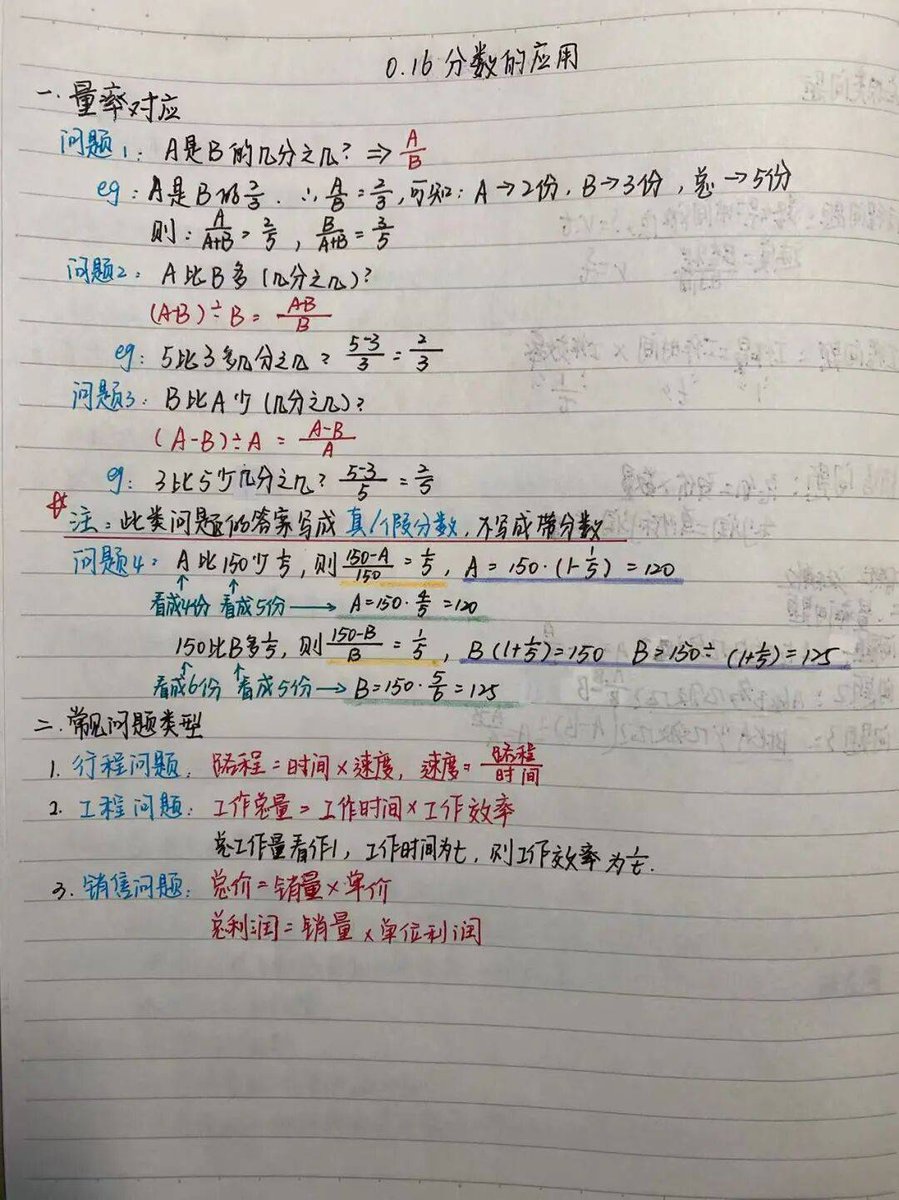 0.16 分数的应用
一.量率对应
问题1: A是B的几分之几? ⇒ A/B
eg: A是B的2/3. ∴ A/B = 2/3, 可知: A→2份, B→3份, 总→5份
则: A/(A+B) = 2/5, B/(A+B) = 3/5
问题2: A比B多(几分之几)?
(A-B)÷B = (A-B)/B
eg: 5比3多几分之几? (5-3)/3 = 2/3
问题3: B比A少(几分之几)?
(A-B)÷A = (A-B)/A
eg: 3比5少几分之几? (5-3)/5 = 2/5
注: 此类问题的答案写成真/假分数, 不写成带分数
问题4: A比150少1/5, 则(150-A)/150 = 1/5, A = 150·(1-1/5) = 120
看成4份 看成5份 → A=150·4/5=120
150比B多1/5, 则(150-B)/B = 1/5, B(1+1/5)=150 B=150÷(1+1/5)=125
看成6份 看成5份 → B=150·5/6=125
二.常见问题类型
1. 行程问题: 路程=时间×速度, 速度=路程/时间
2. 工程问题: 工作总量=工作时间×工作效率
总工作量看作1, 工作时间为t, 则工作效率为1/t.
3. 销售问题: 总价=销量×单价
总利润=销量×单位利润